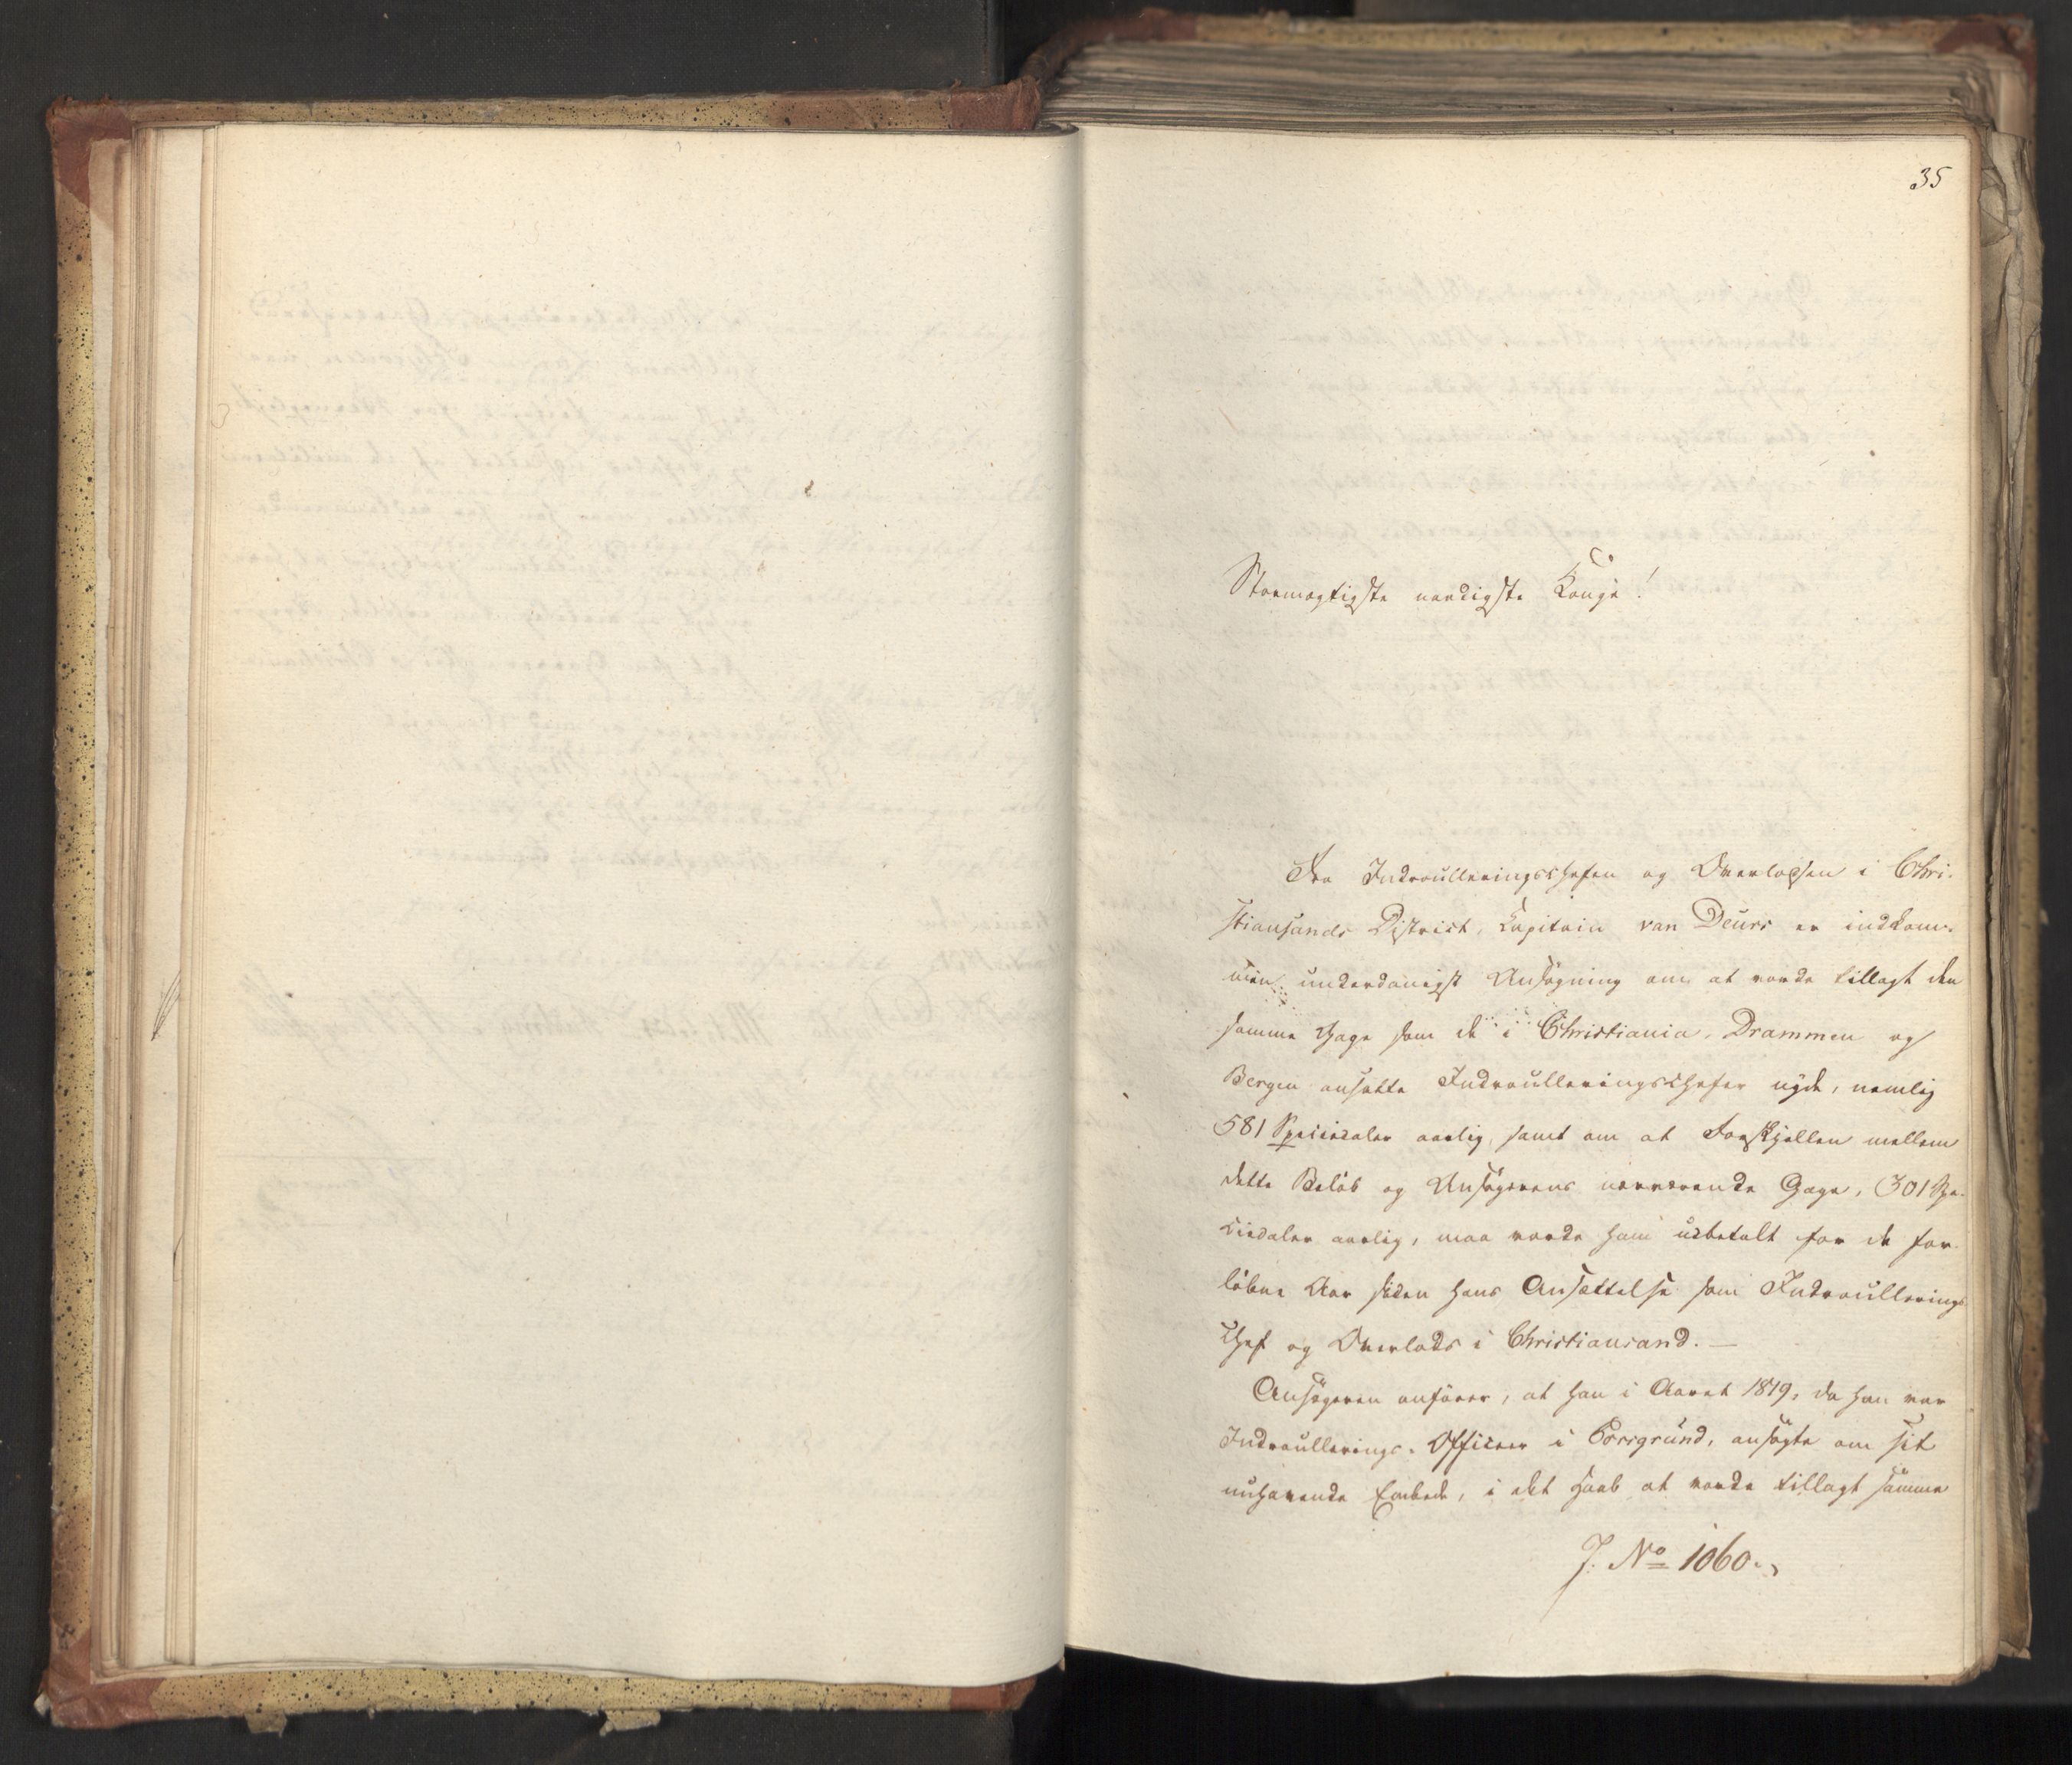 35
Stormægtigste naadigste Konge!
Fra Indroulleringschefen og Overlodsen i Chri-
stiansands District, Capitain van Deurs er indkom-
men underdanigst Ansøgning om at vorde tillagt den
samme Gage som de i Christiania, Drammen og
Bergen ansatte Indroulleringschefer nyde, nemlig
581 Speciedaler aarlig, samt om at Forskjellen mellem
dette Beløb og Ansøgerens nærværende Gage, 301 Spe-
ciedaler aarlig, maa vorde ham udbetalt for de for-
løbne Aar siden hans Ansættelse som Indroullerings-
chef og Overlods i Christiansand. —
Ansøgeren anfører, at han i Aaret 1819, da han var
Indroullerings-Officeer i Porsgrund, ansøgte om sit
nuhavende Embede, i det Haab at vorde tillagt samme
J. No 1060.